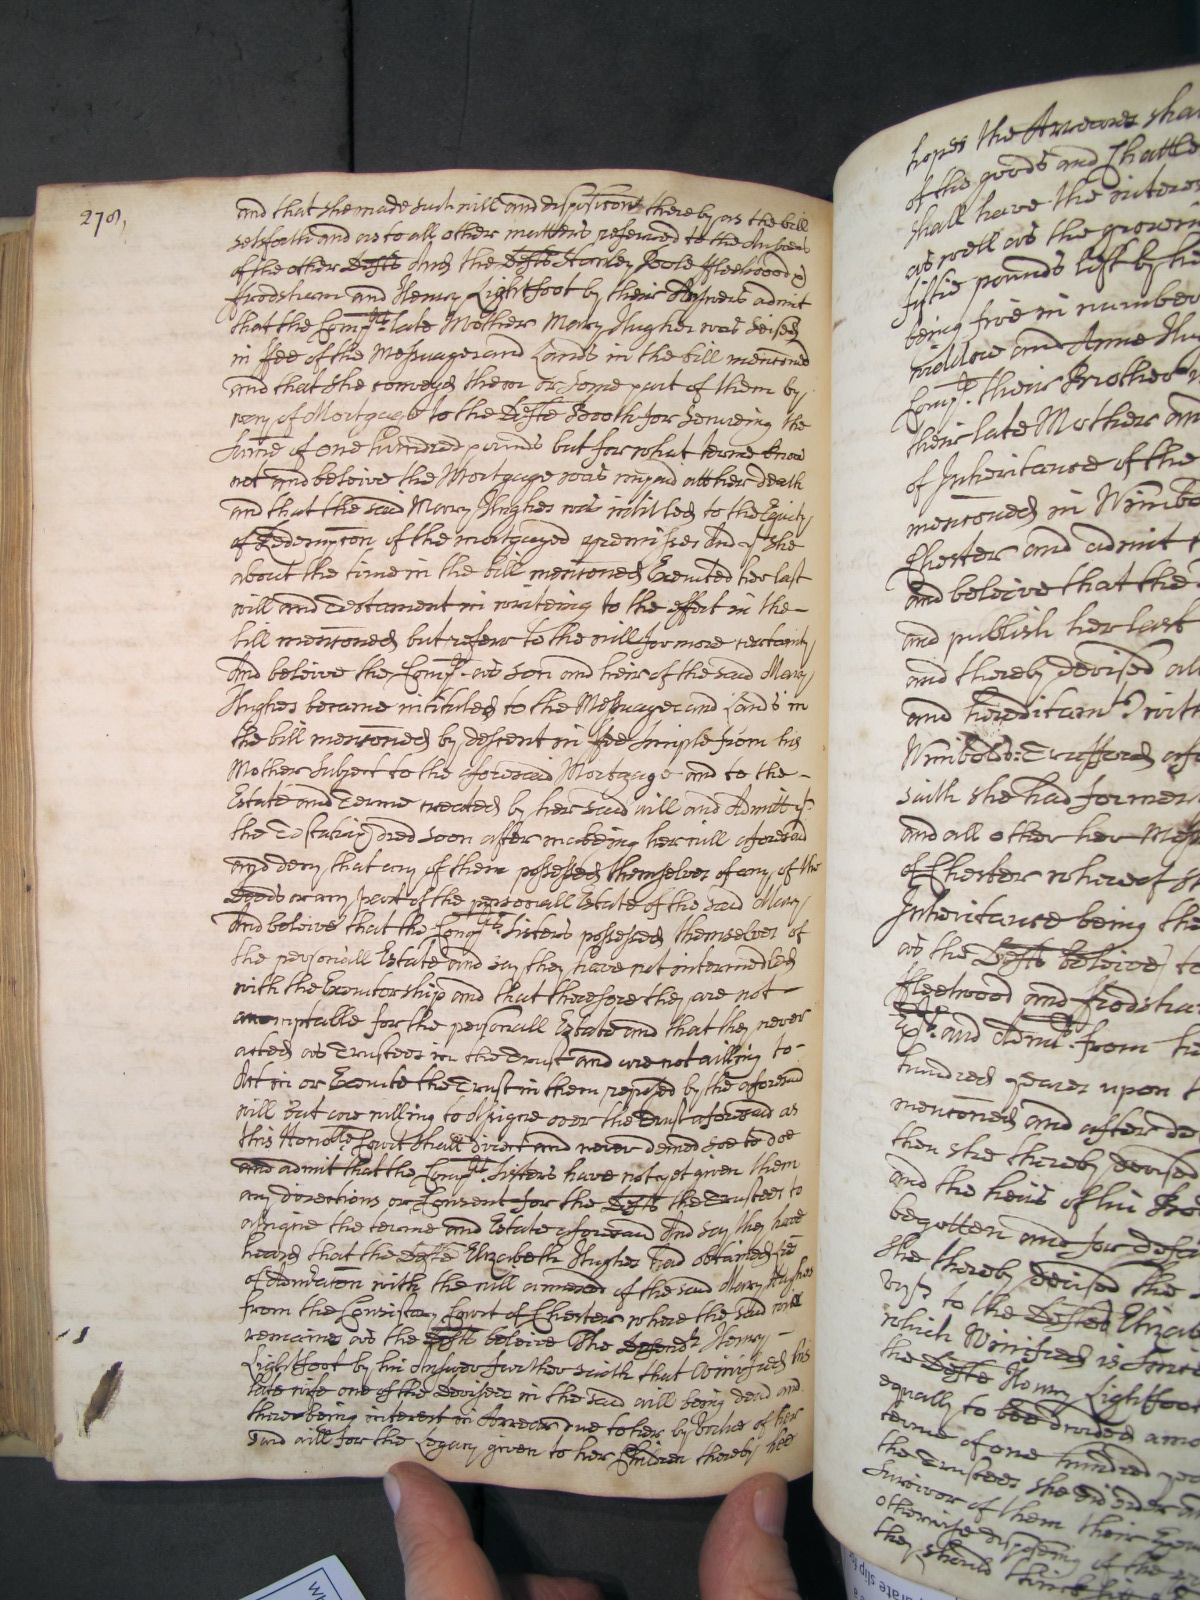 278,
and that she made such will and disposicōns thereby as the bill
setsforth and as to all other matters referred to the Answers
of the other Defts And the Defts Hartley Poole Fleetwood
Frodsham and Henry Lightfoot by their Answers admit
that the Compts late Mother Mary Hughes was seised
in ffee of the Messuages and Lands in the bill menconed
and that she conveyed them or some part of them by
way of Mortgage to the Defte Booth for secureing the
Sume of one hundred pounds but for what terme know
not and beleive the Mortgage was unpaid att her death
and that the said Mary Hughes was intitled to the Equity
of Redempcon of the mortgaged premisses And yt she
about the time in the bill menconed Executed her last
will and Testament in writeing to the effect in the
bill menconed but refers to the will for more certainty
And beleive the Compt. as son and heir of the said Mary
Hughes became intituled to the Messuages and Lands in
the bill menconed by descent in ffee simple from his
Mother subject to the aforesaid Mortgage and to the
Estate and Terme created by her said will and Admitt yt
the Testatrix dyed soon after makeing her will aforesaid
and deny that any of them possessed themselves of any of the
Deeds or any part of the personall Estate of the said Mary
And beleive that the Compts Sisters possessed themselves of
the personall Estate and say they have not intermedled
with the Executorship and that therefore they are not
accomptable for the personall Estate and that they never
acted as Trustees in the Trust and are not willing to
Act in or Execute the Trust in them reposed by the aforesaid
will but are willing to Assigne over the Trust aforesaid as
this Honoble Court shall direct and never denied soe to doe
and admit that the Compts Sisters have not yet given them
any directions or Consent for the Defts the Trustees to
assigne the terme and Estate aforesaid And say they have
heard that the Defte Elizabeth Hughes had obtained
of Admracon with the will annexed of the said Mary Hughes
from the Consistory Court of Chester where the said will
remaines as the Defts beleive The Defendt Henry
Lightfoot by his Answer further saith that Winifred his
late wife one of the devisees in the said will being dead and
there being interest in Arrear due to her by vertue of her
said will for the Legacy given to her Children thereby hee
hopes the Arreares
of the goods and Chattle
shall have the
as well as the
fiftie pounds left by
being five in number
widdow and Anne
Compt. their Brother
their late Mother and
of Inheritance of the
menconed in
Chester and admit
and beleive that the
and publish her last
and thereby devised all
and hereditamts with
Trafford
saith she had
and all other her
of Chester whereof
Inheritance being the
as the Defts beleive) to
ffleetwood and
Exrs. and Admrs. from
hundred yeares upon
menconed and after
then she thereby devised
and the heirs of his
begotten and for
she thereby devised the
to the
which Winifred is
the Defte Henry Lightfoot
equally to bee divided
terme of one hundred
the Trustees she did order
Survivor of them their
otherwise disposeing of the
they should thinke